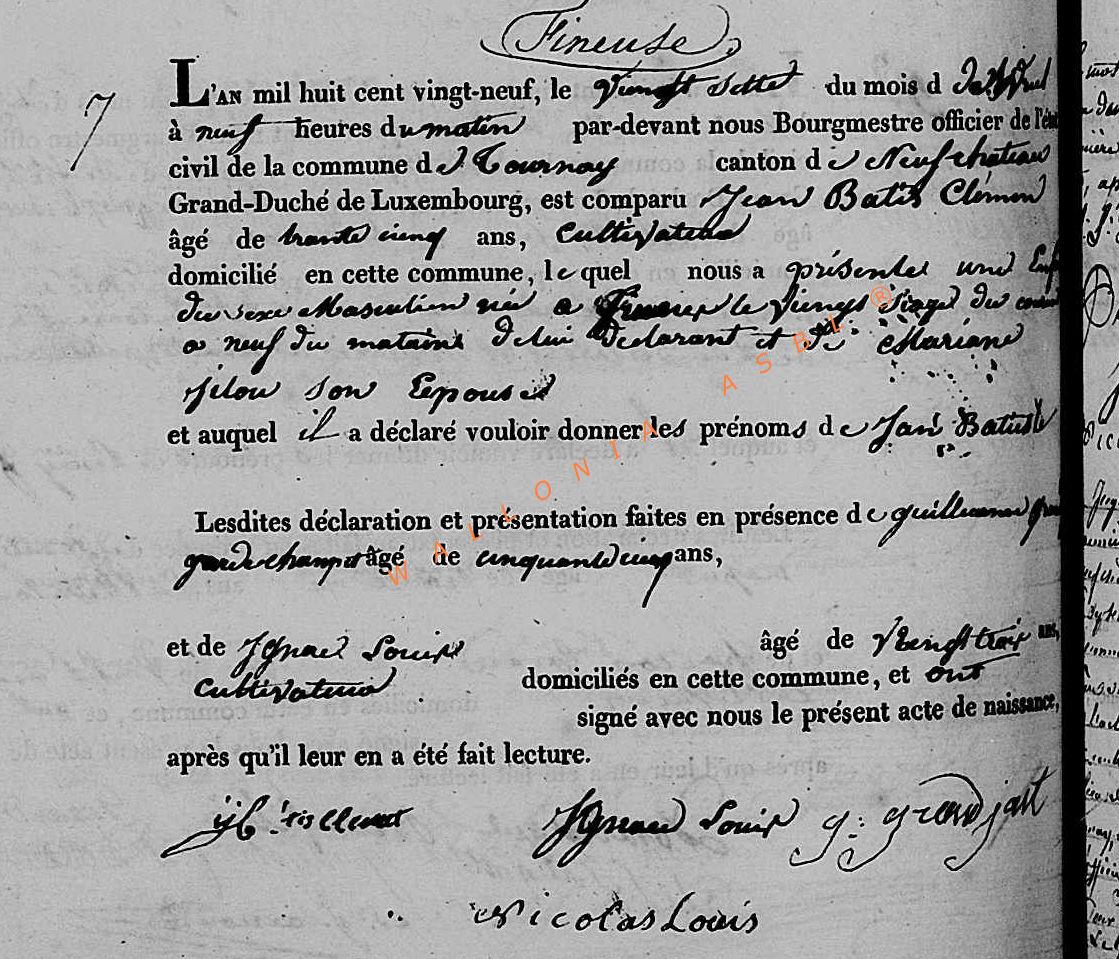 Fineuse
7
L'AN mil huit cent vingt-neuf, le Vingt sette du mois d
à neuf heures du matin par-devant nous Bourgmestre officier de l'éta
civil de la commune de Tournay canton de Neufchateau
Grand-Duché de Luxembourg, est comparu Jean Batis Clémen
âgé de trante cinq ans, Cultivateur
domicilié en cette commune, lequel nous a présenté une Enf
du sexe Masculien née a le Vingt du
a neuf du matains de lui Declarant et de Mariane
son Epouse
et auquel il a déclaré vouloir donner les prénoms de Jan Batist
Lesdites déclaration et présentation faites en présence de guilleaume
gardechampet âgé de cinquante cinq ans,
et de Ignace Louis âgé de Veingt trois ans,
Cultivateur domiciliés en cette commune, et ont
signé avec nous le présent acte de naissance,
après qu'il leur en a été fait lecture.
Ignace Louis g: grandjait
Nicolas Louis
WALLONIA ASBL ®